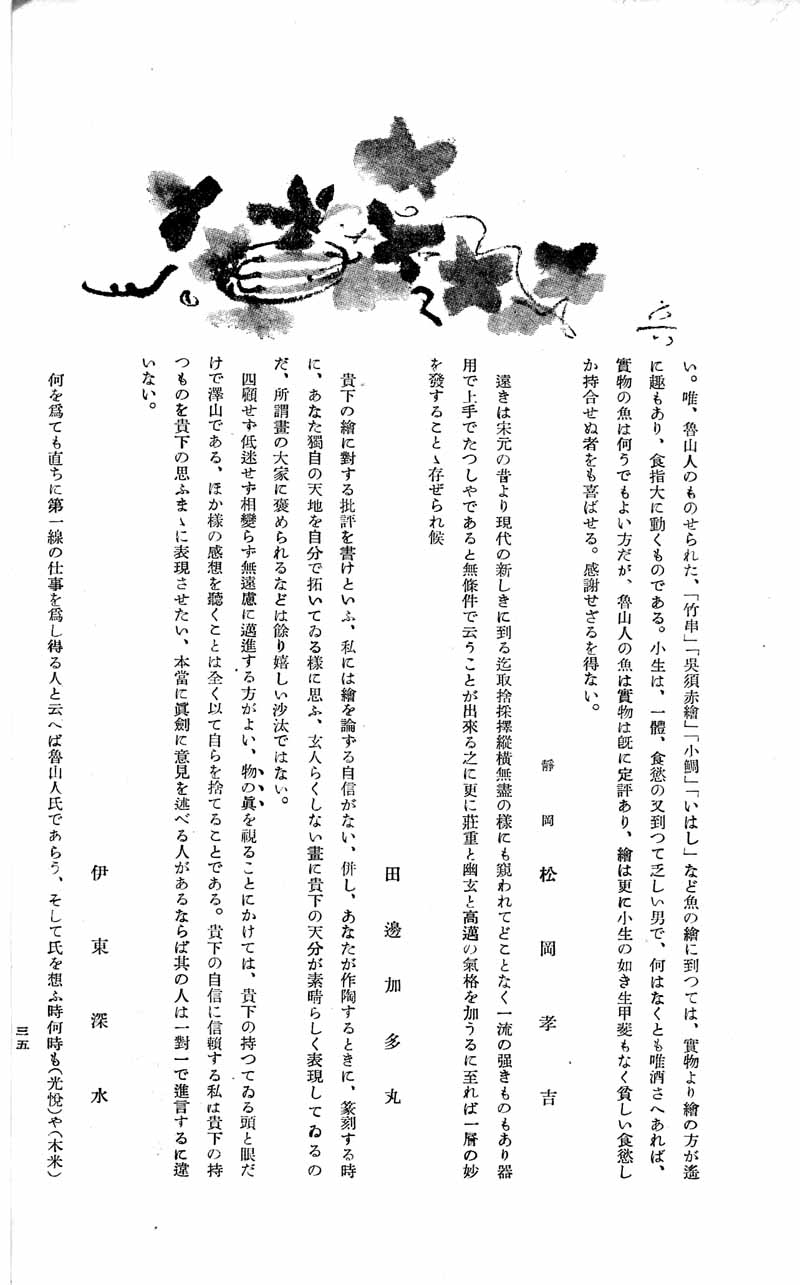 い。唯、魯山人のものせられた、「竹串」「吳須赤繪」「小鯛」「いはし」など魚の繪に到つては、實物より繪の方が遙
に趣もあり、食指大に動くものである。小生は、一體、食慾の又到つて乏しい男で、何はなくとも唯酒さへあれば、
實物の魚は何うでもよい方だが、魯山人の魚は實物は旣に定評あり、繪は更に小生の如き生甲斐もなく貧しい食慾し
か持合せぬ者をも喜ばせる。感謝せざるを得ない。
靜岡 松岡孝吉
遠きは宋元の昔より現代の新しきに到る迄取捨採擇縱橫無盡の樣にも窺われてどことなく一流の强きものもあり器
用で上手でたつしやであると無條件で云うことが出來る之に更に莊重と幽玄と高邁の氣格を加うるに至れば一層の妙
を發することゝ存ぜられ候
田邊加多丸
貴下の繪に對する批評を書けといふ、私には繪を論ずる自信がない、併し、あなたが作陶するときに、篆刻する時
に、あなた獨自の天地を自分で拓いてゐる樣に思ふ、玄人らくしない畫に貴下の天分が素晴らしく表現してゐるの
だ、所謂畫の大家に褒められるなどは餘り嬉しい沙汰ではない。
四顧せず低迷せず相變らず無遠慮に邁進する方がよい、物の眞を視ることにかけては、貴下の持つてゐる頭と眼だ
けで澤山である、ほか樣の感想を聽くことは全く以て自らを捨てることである。貴下の自信に信賴する私は貴下の持
つものを貴下の思ふまゝに表現させたい、本當に眞劍に意見を述べる人があるならば其の人は一對一で進言するに違
いない。
伊東深水
何を爲ても直ちに第一線の仕事を爲し得る人と云へば魯山人氏であらう、そして氏を想ふ時何時も(光悅)や(木米)
三五